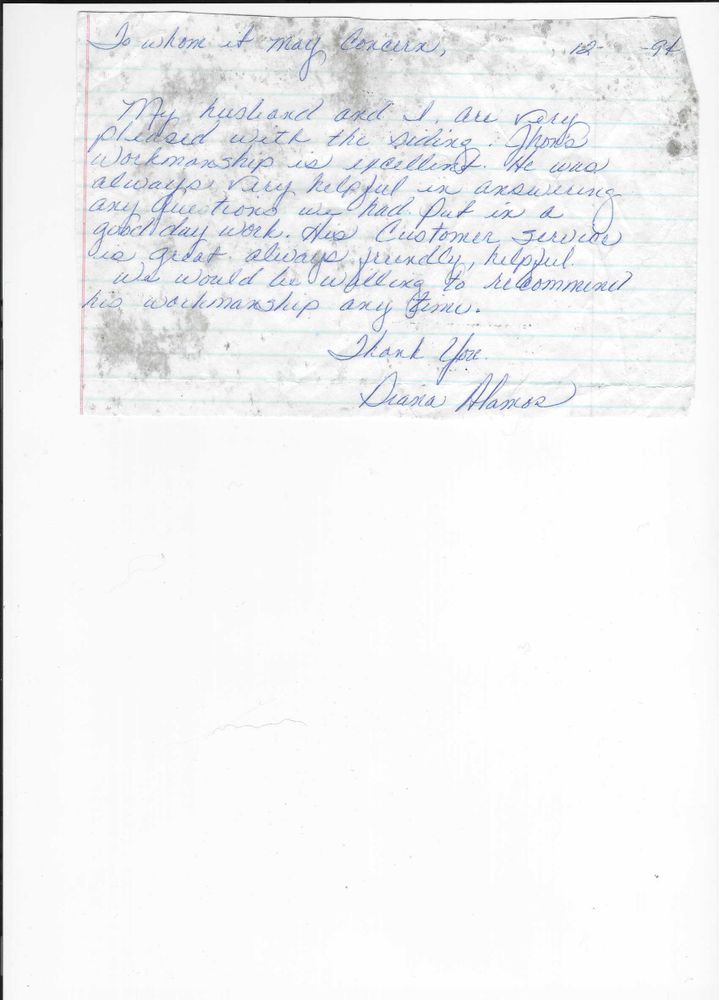 To whom it may Concern, 12- -94
My husband and I. are very
pleased with the siding. Jhon's
workmanship is excellent. He was
always very helpful in answering
any questions we had. Put in a
good day work. His Customer service
is great always friendly, helpful.
we would be willing to recommend
his workmanship any time.
Thank You.
Diana Alamos